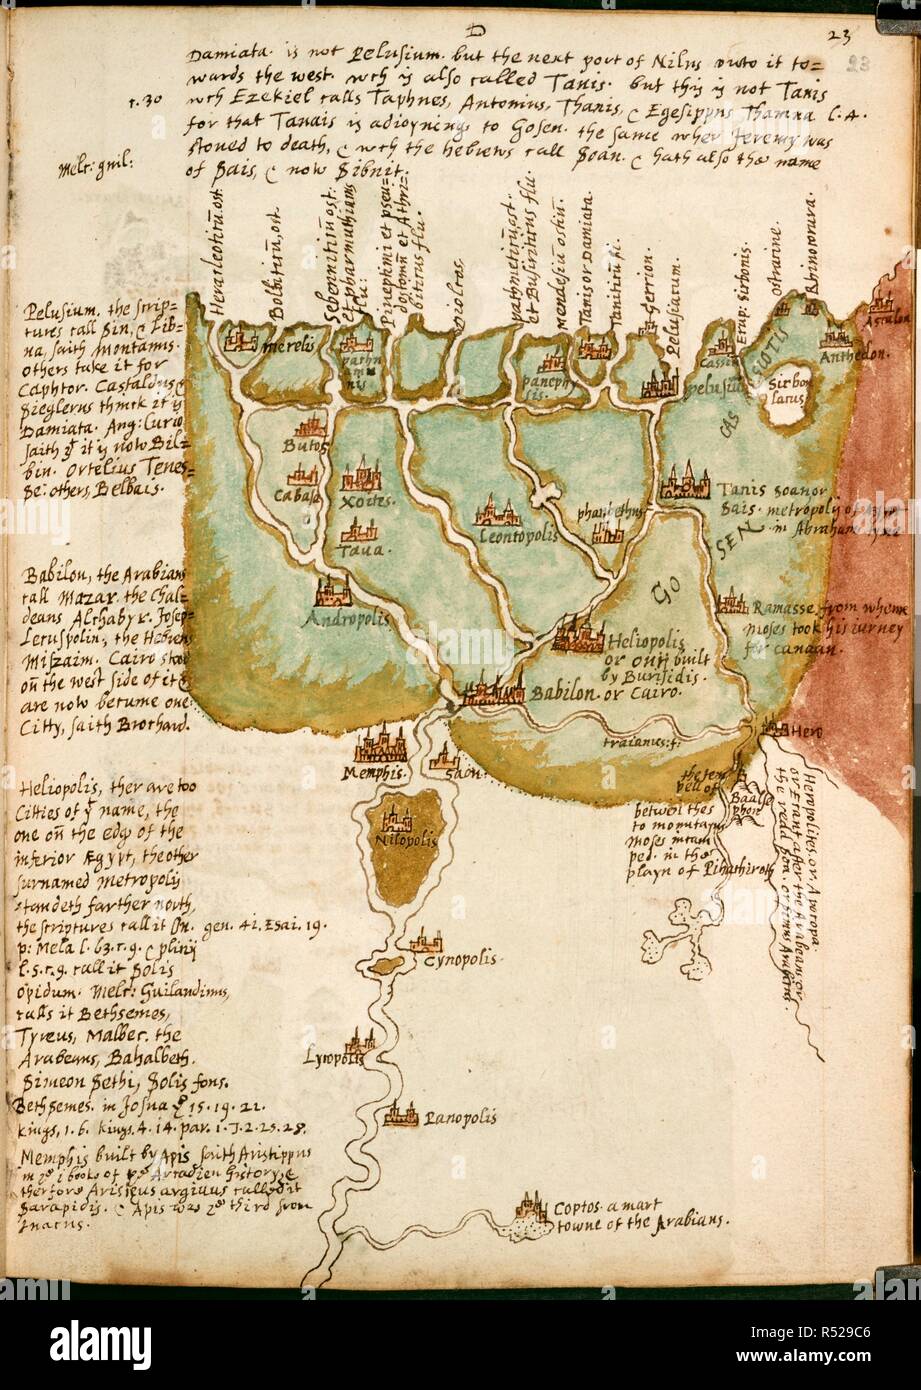 D
23
23
Damiata. is not Pelusium. but the next port of Nilus unto it to=
wards the west. wch is also called Tanis. but this is not Tanis
r. 30
wch Ezekiel calls Taphnes, Antonius, Thanis, & Egesippus Thamna l. 4.
for that Tanais is adioyning to Gosen. the same wher Jeremy was
stoned to death, & wch the hebrews call Soan. & hath also the name
of Sais, & now Sibnit.
Melc: guil:
Heracleoticũ ost.
Bolbiticũ, ost.
Sebenniticũ ost:
et pharmuthiams
flu:
Pineptimi et pseu=
dostomũ et Athri=
biticus flu.
Diolcos.
pathmeticũ ost.
et Busiriticus flu.
Mendesiũ ostiũ.
Tanis or Damiata.
Taniticũ fl.
Gerrion.
Pelusiacum.
Erup: Sirbonis.
ostracine.
Rhinocorura.
Ascalon
Anthedon.
Pelusium, the scrip=
tures call Sin, & Lib=
na, saith Montanus.
others take it for
Caphtor. Castaldus &
Sieglerus think it is
Damiata. Ang: Curio
saith yt it is now Bil=
bin. Ortelius Tenes=
se: others, Belbais.
merelis
pathn
amu
nis
panephy
sis.
Cassiũ
pelusiũ
CAS SIOTIS
Sirbon
lacus
Butos
Cabasa
Xoites.
Taua.
Leontopolis
pharbethus
Tanis Soan or
Sais. metropoly of
in Abraham
GO SEN
Andropolis
Ramasse from whence
Moses took his iurney
for canaan.
Heliopolis
or ON built
by Burisidis.
Babilon. or Cairo.
traianus: f:
Hero
Babilon, the Arabians
call Mazar. the Chal=
deans Alchabyr. Josep=
Leruspolin, the Hebrews
Miszaim. Cairo stood
oñ the west side of it &
are now become one
Citty, saith Brochard.
Memphis.
Saon.
Nilopolis
Baalse
phon
betwen thes
to mountayns
Moses incam
ped. in the
playn of Pihathiroth
Heliopolis, ther are too
Citties of yt name, the
one oñ the edg of the
inferior Ægypt, the other
surnamed metropoly
standeth farther north,
the scriptures call it On. gen. 41. Esai. 19.
p: Mela l. 63. c. 9. & pliny
l. 5. c. 9. call it Solis
opidum. Melc: Guilandinus,
calls it Bethsemes,
Tyreus, Malbec. the
Arabeans, Bahalbeth.
Simeon Sethi, Solis fons.
Bethsemes. in Josua 15. 19. 21.
kings, 1. 6. kings. 4. 14. par. 1. J. 2. 25. 28.
Cynopolis.
Lycopolis
Panopolis
Memphis built by Apis saith Aristippus
in ye i booke of ye Arcadien History, &
therfore Aristeus argiuus called it
Sarapidis. & Apis was ye third from
Inacus.
Coptos. a mart
towne of the Arabians.
alamy
Image ID: R529C6
www.alamy.com